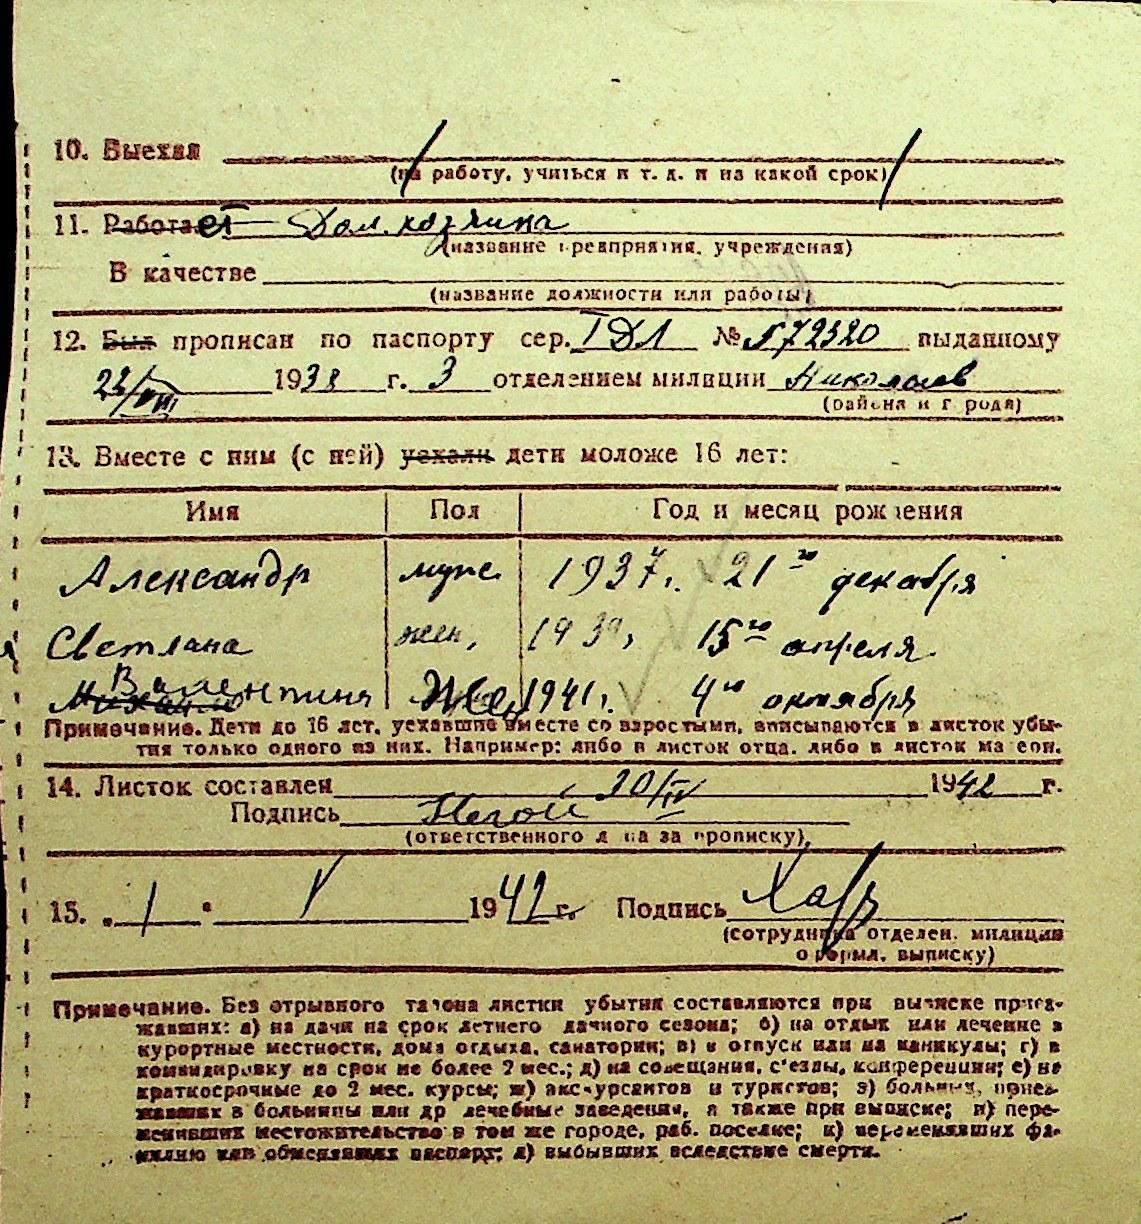 10. Выехал
(на работу, учиться и т. д. и на какой срок)
11. Работает Дом. хозяйка
(название предприятия, учреждения)
В качестве
(название должности или работы)
12. Был прописан по паспорту сер. ІДЛ № 572320 выданному
23/VIII 1938 г. 3 отделением милиции Николаев
(района и города)
13. Вместе с ним (с ней) уехали дети моложе 16 лет:
Имя Пол Год и месяц рождения
Александр муж. 1937 г. 21го декабря
Светлана жен. 1939 г. 15го апреля
Валентина Жен 1941 г. 4го октября
Примечание. Дети до 16 лет, уехавшие вместе со взрослыми, вписываются в листок убы-
тия только одного из них. Например: либо в листок отца, либо в листок матери.
14. Листок составлен 20/IV 1942 г.
Подпись
(ответственного лица за прописку)
15. „1" V 1942 г. Подпись
(сотрудника отделен. милиции
оформл. выписку)
Примечание. Без отрывного талона листки убытия составляются при выписке приез-
жавших: а) на дачи на срок летнего дачного сезона; б) на отдых или лечение в
курортные местности, дома отдыха, санатории; в) в отпуск или на каникулы; г) в
командировку на срок не более 2 мес.; д) на совещания, с'езды, конференции; е) на
краткосрочные до 2 мес. курсы; ж) экскурсантов и туристов; з) больных, приез-
жавших в больницы или др лечебные заведения, а также при выписке; и) пере-
менивших местожительство в том же городе, раб. поселке; к) переменивших фа-
милию или обменявших паспорт; л) выбывших вследствие смерти.